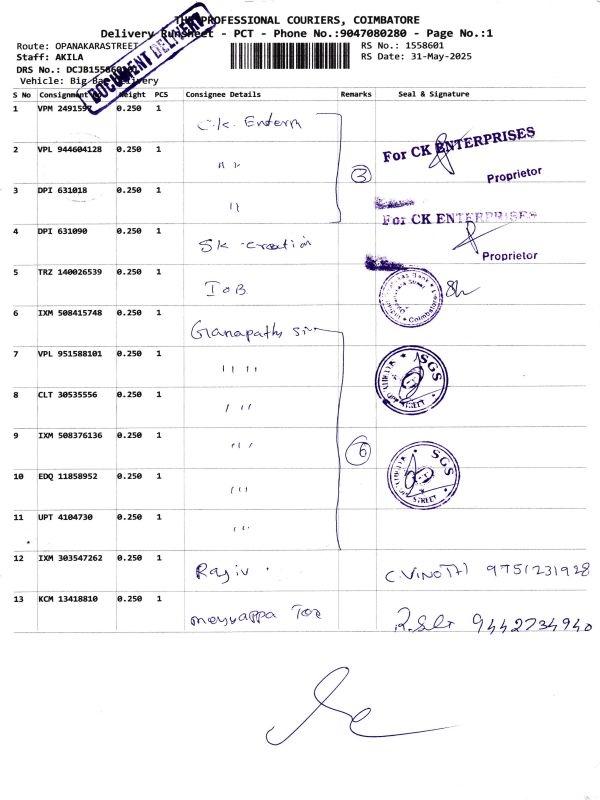 THE PROFESSIONAL COURIERS, COIMBATORE
Delivery Runsheet - PCT - Phone No.:9047080280 - Page No.:1
DOCUMENT DELIVERY
Route: OPANAKARASTREET
RS No.: 1558601
Staff: AKILA
RS Date: 31-May-2025
DRS No.: DCJB1558601
Vehicle: Big Bag Delivery
S No Consignment No Weight PCS Consignee Details Remarks Seal & Signature
1 VPM 2491597 0.250 1 C.K. Enterp
2 VPL 944604128 0.250 1 " " 3 For CK ENTERPRISES
Proprietor
3 DPI 631018 0.250 1 "
For CK ENTERPRISES
4 DPI 631090 0.250 1 SK creation
Proprietor
5 TRZ 140026539 0.250 1 IOB
6 IXM 508415748 0.250 1 Ganapathy
7 VPL 951588101 0.250 1 " " SGS
8 CLT 30535556 0.250 1 " "
9 IXM 508376136 0.250 1 " " 6
10 EDQ 11858952 0.250 1 " " SGS
STREET
11 UPT 4104730 0.250 1 " "
12 IXM 303547262 0.250 1 Rajiv C. VINOTH 9751231928
13 KCM 13418810 0.250 1 meyyappa Tex 9442734940